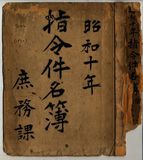 昭和十年
指令件名簿
庶務課